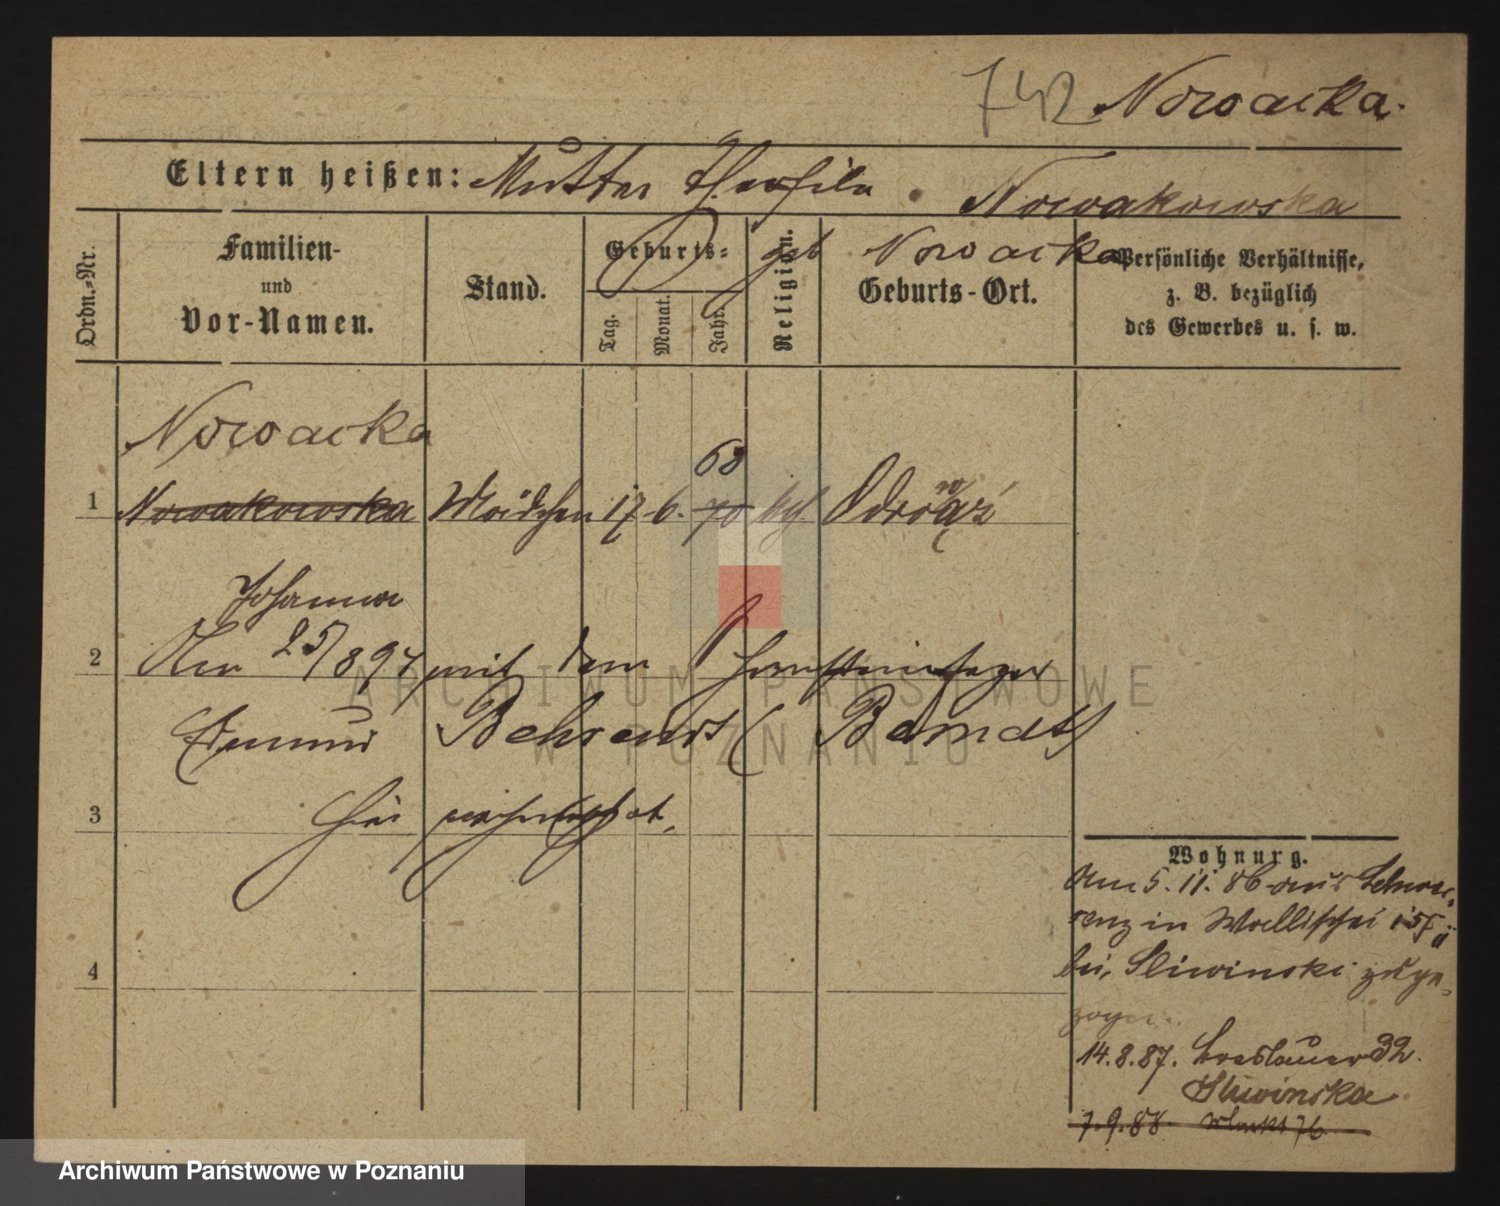 742 Nowacka.
Eltern heißen: Mutter Theofila Nowakowska
geb Nowacka
Ordn.-Nr.
Familien- und Vor-Namen.
Stand.
Geburts-
Tag.
Monat.
Jahr.
Religion.
Geburts-Ort.
Persönliche Verhältnisse, z. B. bezüglich des Gewerbes u. s. w.
Nowacka
68
1 Nowakowska Mädchen 17. 6. 70 kth.
Johanna
2 25/8 94 mit dem Schornsteinfeger
Edmund Behrendt (Berndt)
3 hier
4
Wohnung.
Am 5. 11. 86 aus
in Wallischei
bei Sliwinski zuge-
zogen.
14. 8. 87. Breslauer 32.
Sliwinska
7. 9. 88 Markt 76
ARCHIWUM PAŃSTWOWE
W POZNANIU
Archiwum Państwowe w Poznaniu